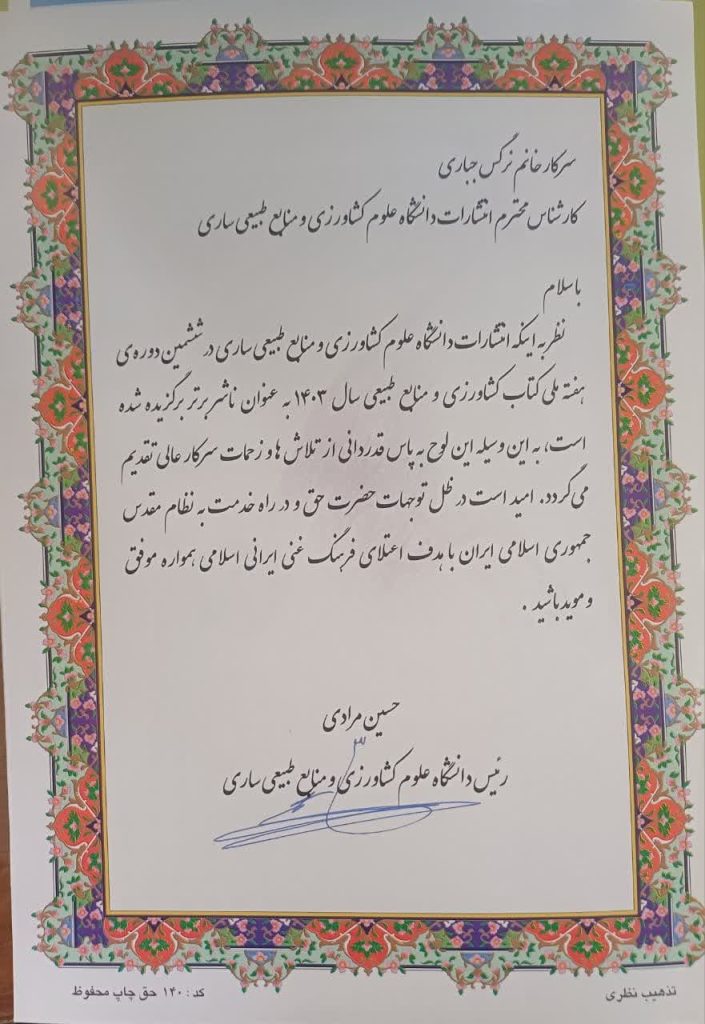 سرکار خانم نرگس جباری
کارشناس محترم انتشارات دانشگاه علوم کشاورزی و منابع طبیعی ساری
با سلام
نظر به اینکه انتشارات دانشگاه علوم کشاورزی و منابع طبیعی ساری در ششمین دوره‌ی
هفته ملی کتاب کشاورزی و منابع طبیعی سال ۱۴۰۳ به عنوان ناشر برتر برگزیده شده
است، به این وسیله این لوح به پاس قدردانی از تلاش ها و زحمات سرکار عالی تقدیم
می گردد. امید است در ظل توجهات حضرت حق و در راه خدمت به نظام مقدس
جمهوری اسلامی ایران با هدف اعتلای فرهنگ غنی ایرانی اسلامی همواره موفق
و موید باشید .
حسین مرادی
رئیس دانشگاه علوم کشاورزی و منابع طبیعی ساری
تذهیب نظری
کد : ۱۴۰ حق چاپ محفوظ